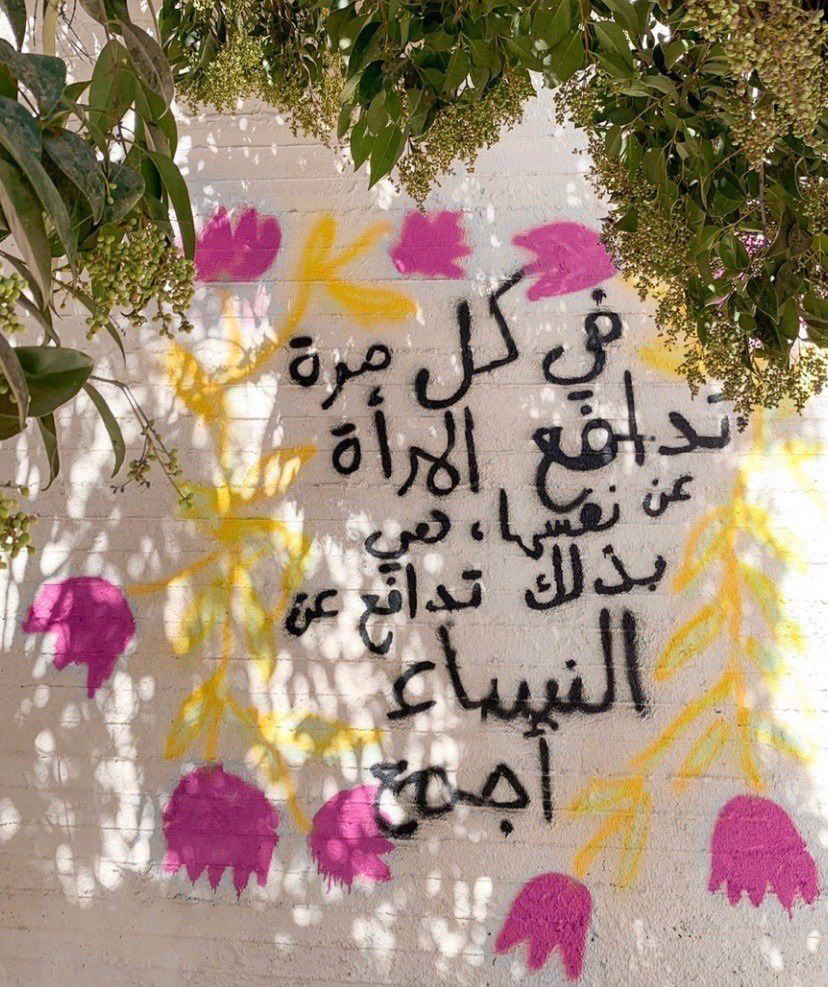 في كل مرة
تدافع المرأة
عن نفسها، هي
بذلك تدافع عن
النساء
أجمع